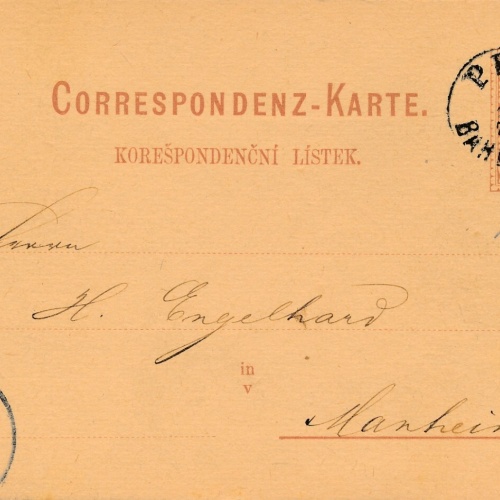 CORRESPONDENZ-KARTE.
KOREŠPONDENČNÍ LÍSTEK.
Herrn
H. Engelhard
in
v
Manheim